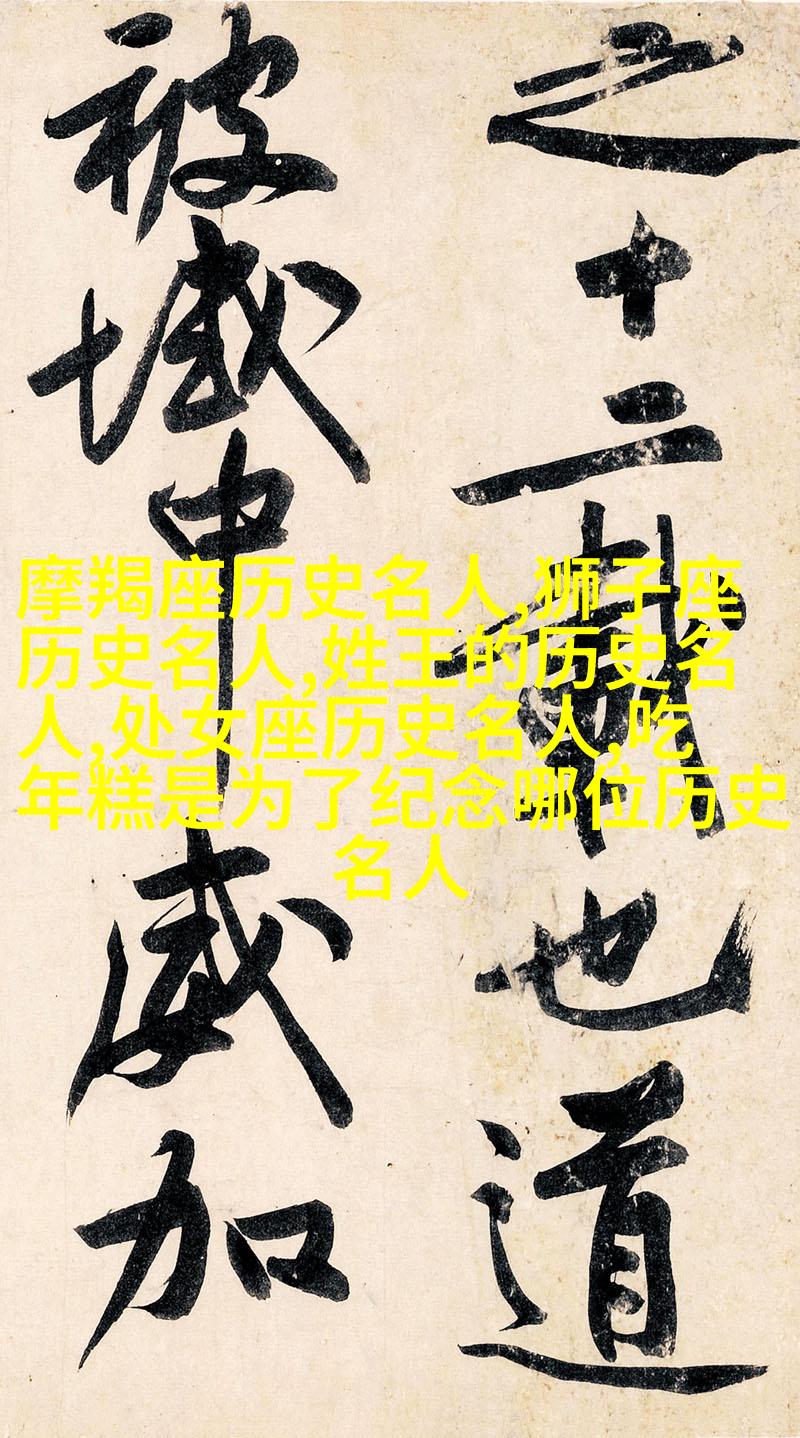 之十二載也道
被域中威加
摩羯座历史名人,狮子座
历史名人,姓王的历史名
人,处女座历史名人,吃
年糕是为了纪念哪位历史
名人